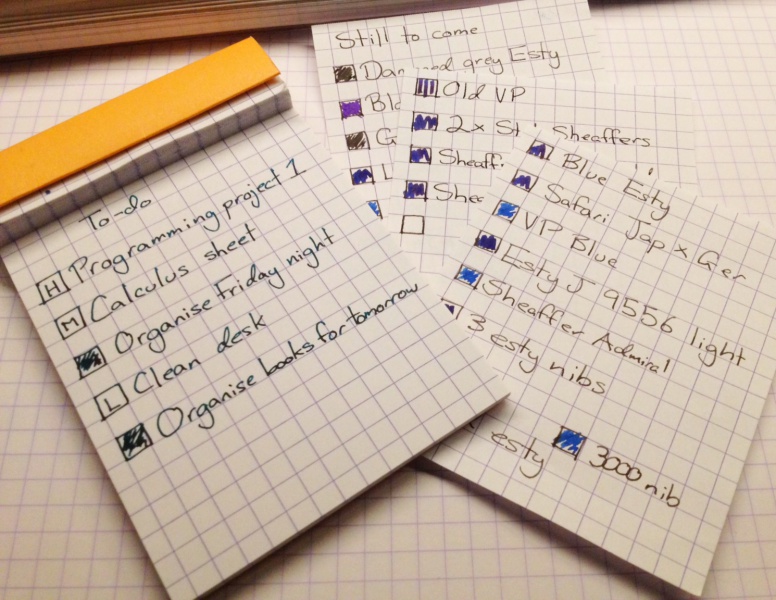 To-do
H Programming project 1
M Calculus sheet
Organise Friday night
L Clean desk
Organise books for tomorrow
Still to come
grey Esty
G
L
Old VP
2x Sheaffers
Blue Esty
Safari Jap x Ger
VP Blue
Esty J 9556 light
Sheaffer Admiral
3 esty nibs
esty
3000 nib